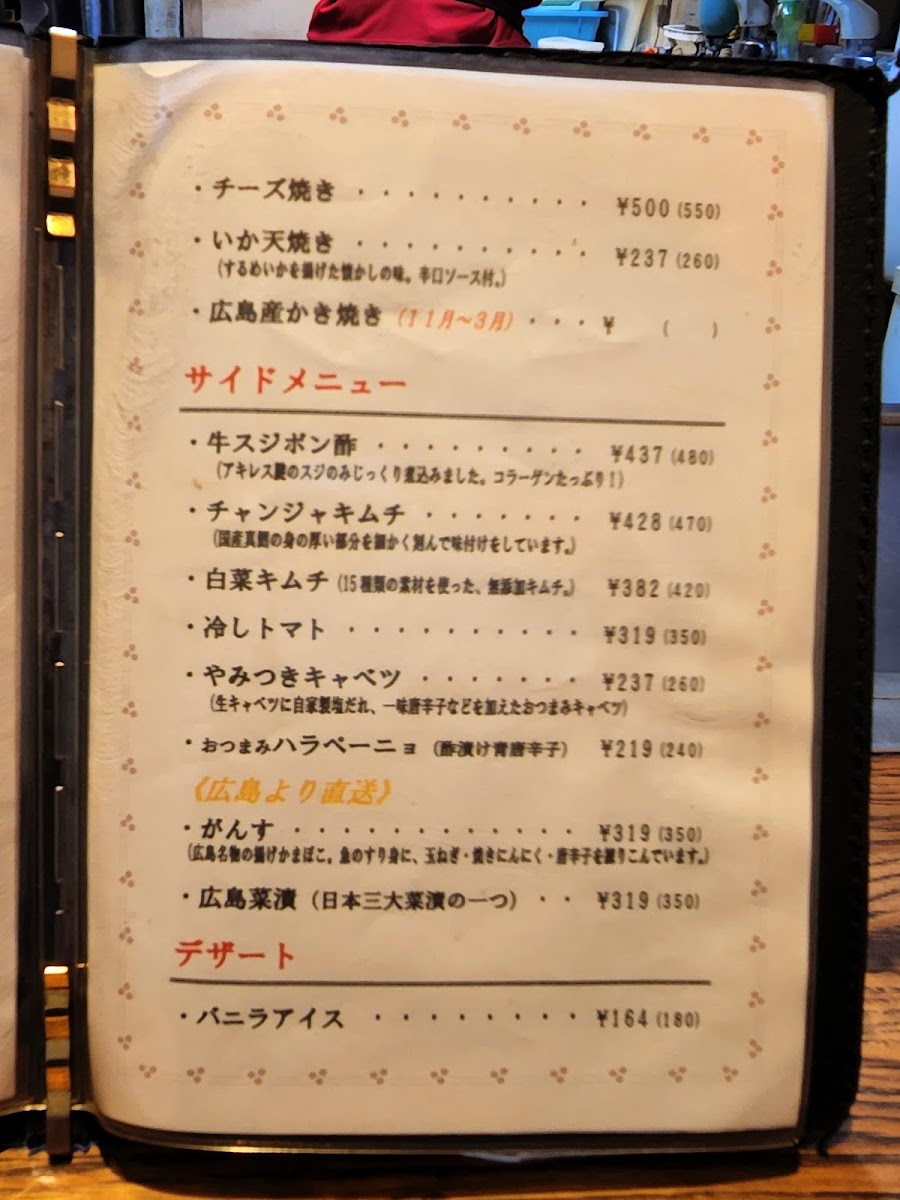 ・チーズ焼き ・・・・・・・・・・ ¥500(550)
・いか天焼き ・・・・・・・・・・ ¥237(260)
(するめいかを揚げた懐かしの味。辛口ソース付。)
・広島産かき焼き (11月〜3月) ・・・ ¥ ( )
サイドメニュー
・牛スジポン酢 ・・・・・・・・・ ¥437(480)
(アキレス腱のスジのみじっくり煮込みました。コラーゲンたっぷり!)
・チャンジャキムチ ・・・・・・・ ¥428(470)
(国産真鱈の身の厚い部分を細かく刻んで味付けをしています。)
・白菜キムチ (15種類の素材を使った、無添加キムチ。) ¥382(420)
・冷しトマト ・・・・・・・・・・ ¥319(350)
・やみつきキャベツ ・・・・・・・ ¥237(260)
(生キャベツに自家製塩だれ、一味唐辛子などを加えたおつまみキャベツ)
・おつまみハラペーニョ (酢漬け青唐辛子) ¥219(240)
《広島より直送》
・がんす ・・・・・・・・・・・・ ¥319(350)
(広島名物の揚げかまぼこ。魚のすり身に、玉ねぎ・焼きにんにく・唐辛子を練りこんでいます。)
・広島菜漬 (日本三大菜漬の一つ) ・・ ¥319(350)
デザート
・バニラアイス ・・・・・・・・ ¥164(180)